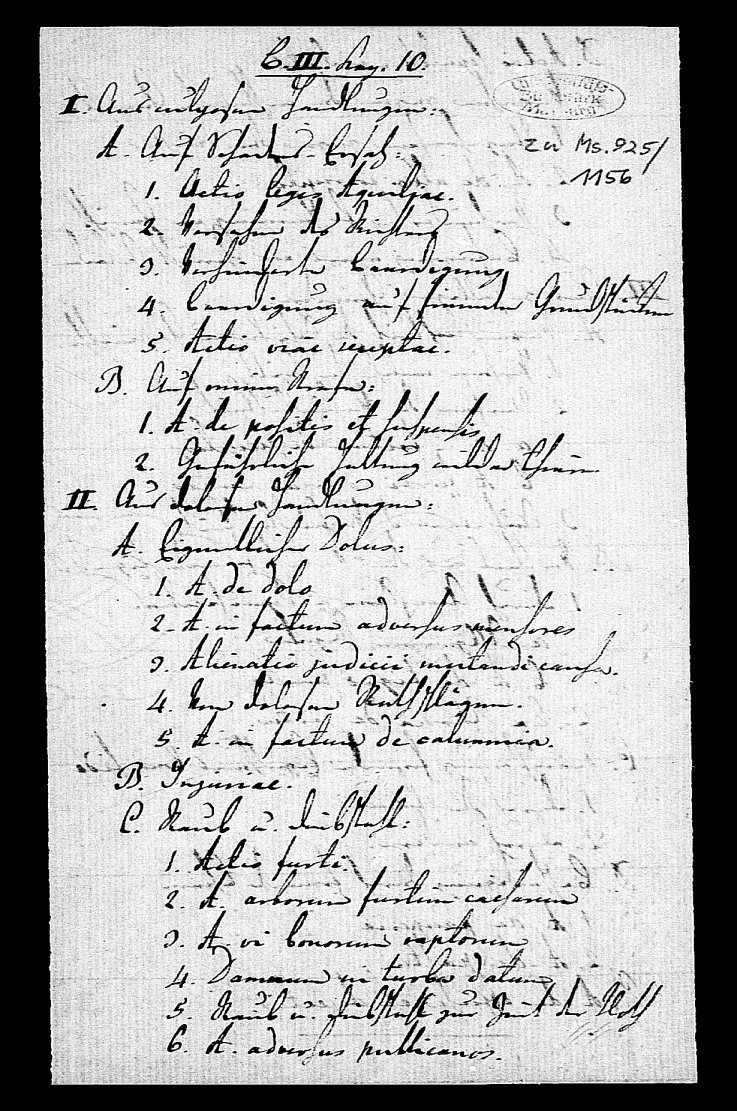 C. III. Kap. 10.
I. Aus culposen Handlungen:
zu Ms. 925/
1156
A. Auf Schadens-Ersatz:
1. Actio legis Aquiliae.
2. Versehen des Richters
3. Verhinderte Beerdigung
4 Beerdigung auf fremden Grundstücken
5. Actio viae receptae.
B. Auf Strafe:
1. A. de positis et suspensis
2. Gefährliche Haltung wilder Thiere
II. Aus dolosen Handlungen:
A. Eigentlicher Dolus:
1. A. de dolo
2. A. in factum adversus mensores
3. Alienatio judicii mutandi causa.
4. Von dolosen Rathschlägen.
5 A. in factum de calumnia.
B. Injuriae.
C. Raub u. Diebstahl:
1. Actio furti.
2. A. arborum furtim caesarum
3. A. vi bonorum raptorum
4. Damnum in turba datum
5. Raub u. Diebstahl zur Zeit der Noth
6. A. adversus publicanos.